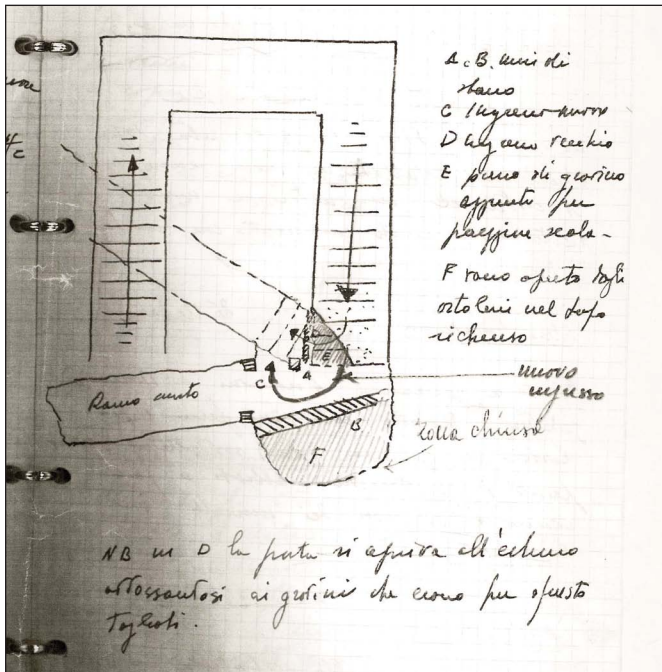 A. B. muri di
C Ingresso nuovo
D ingresso vecchio
E piano di gradino
aggiunto per
scala-
F vano aperto dagli
ortolani nel dopo
richiuso
nuovo
ingresso
Ramo cieco
zona chiusa
A
B
C
D
E
F
NB in D la porta si apriva all'esterno
addossandosi ai gradini che erano per questo
tagliati.